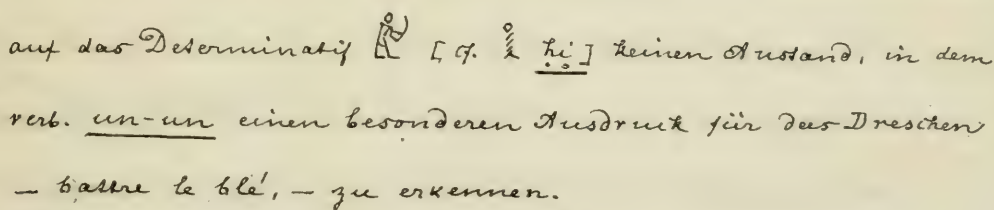 auf das Determinatif 𓀜 [cf. 𓎛 ḥị] keinen Anstand, in dem
verb. un-un einen besonderen Ausdruck für das Dreschen
– battre le blé, – zu erkennen.